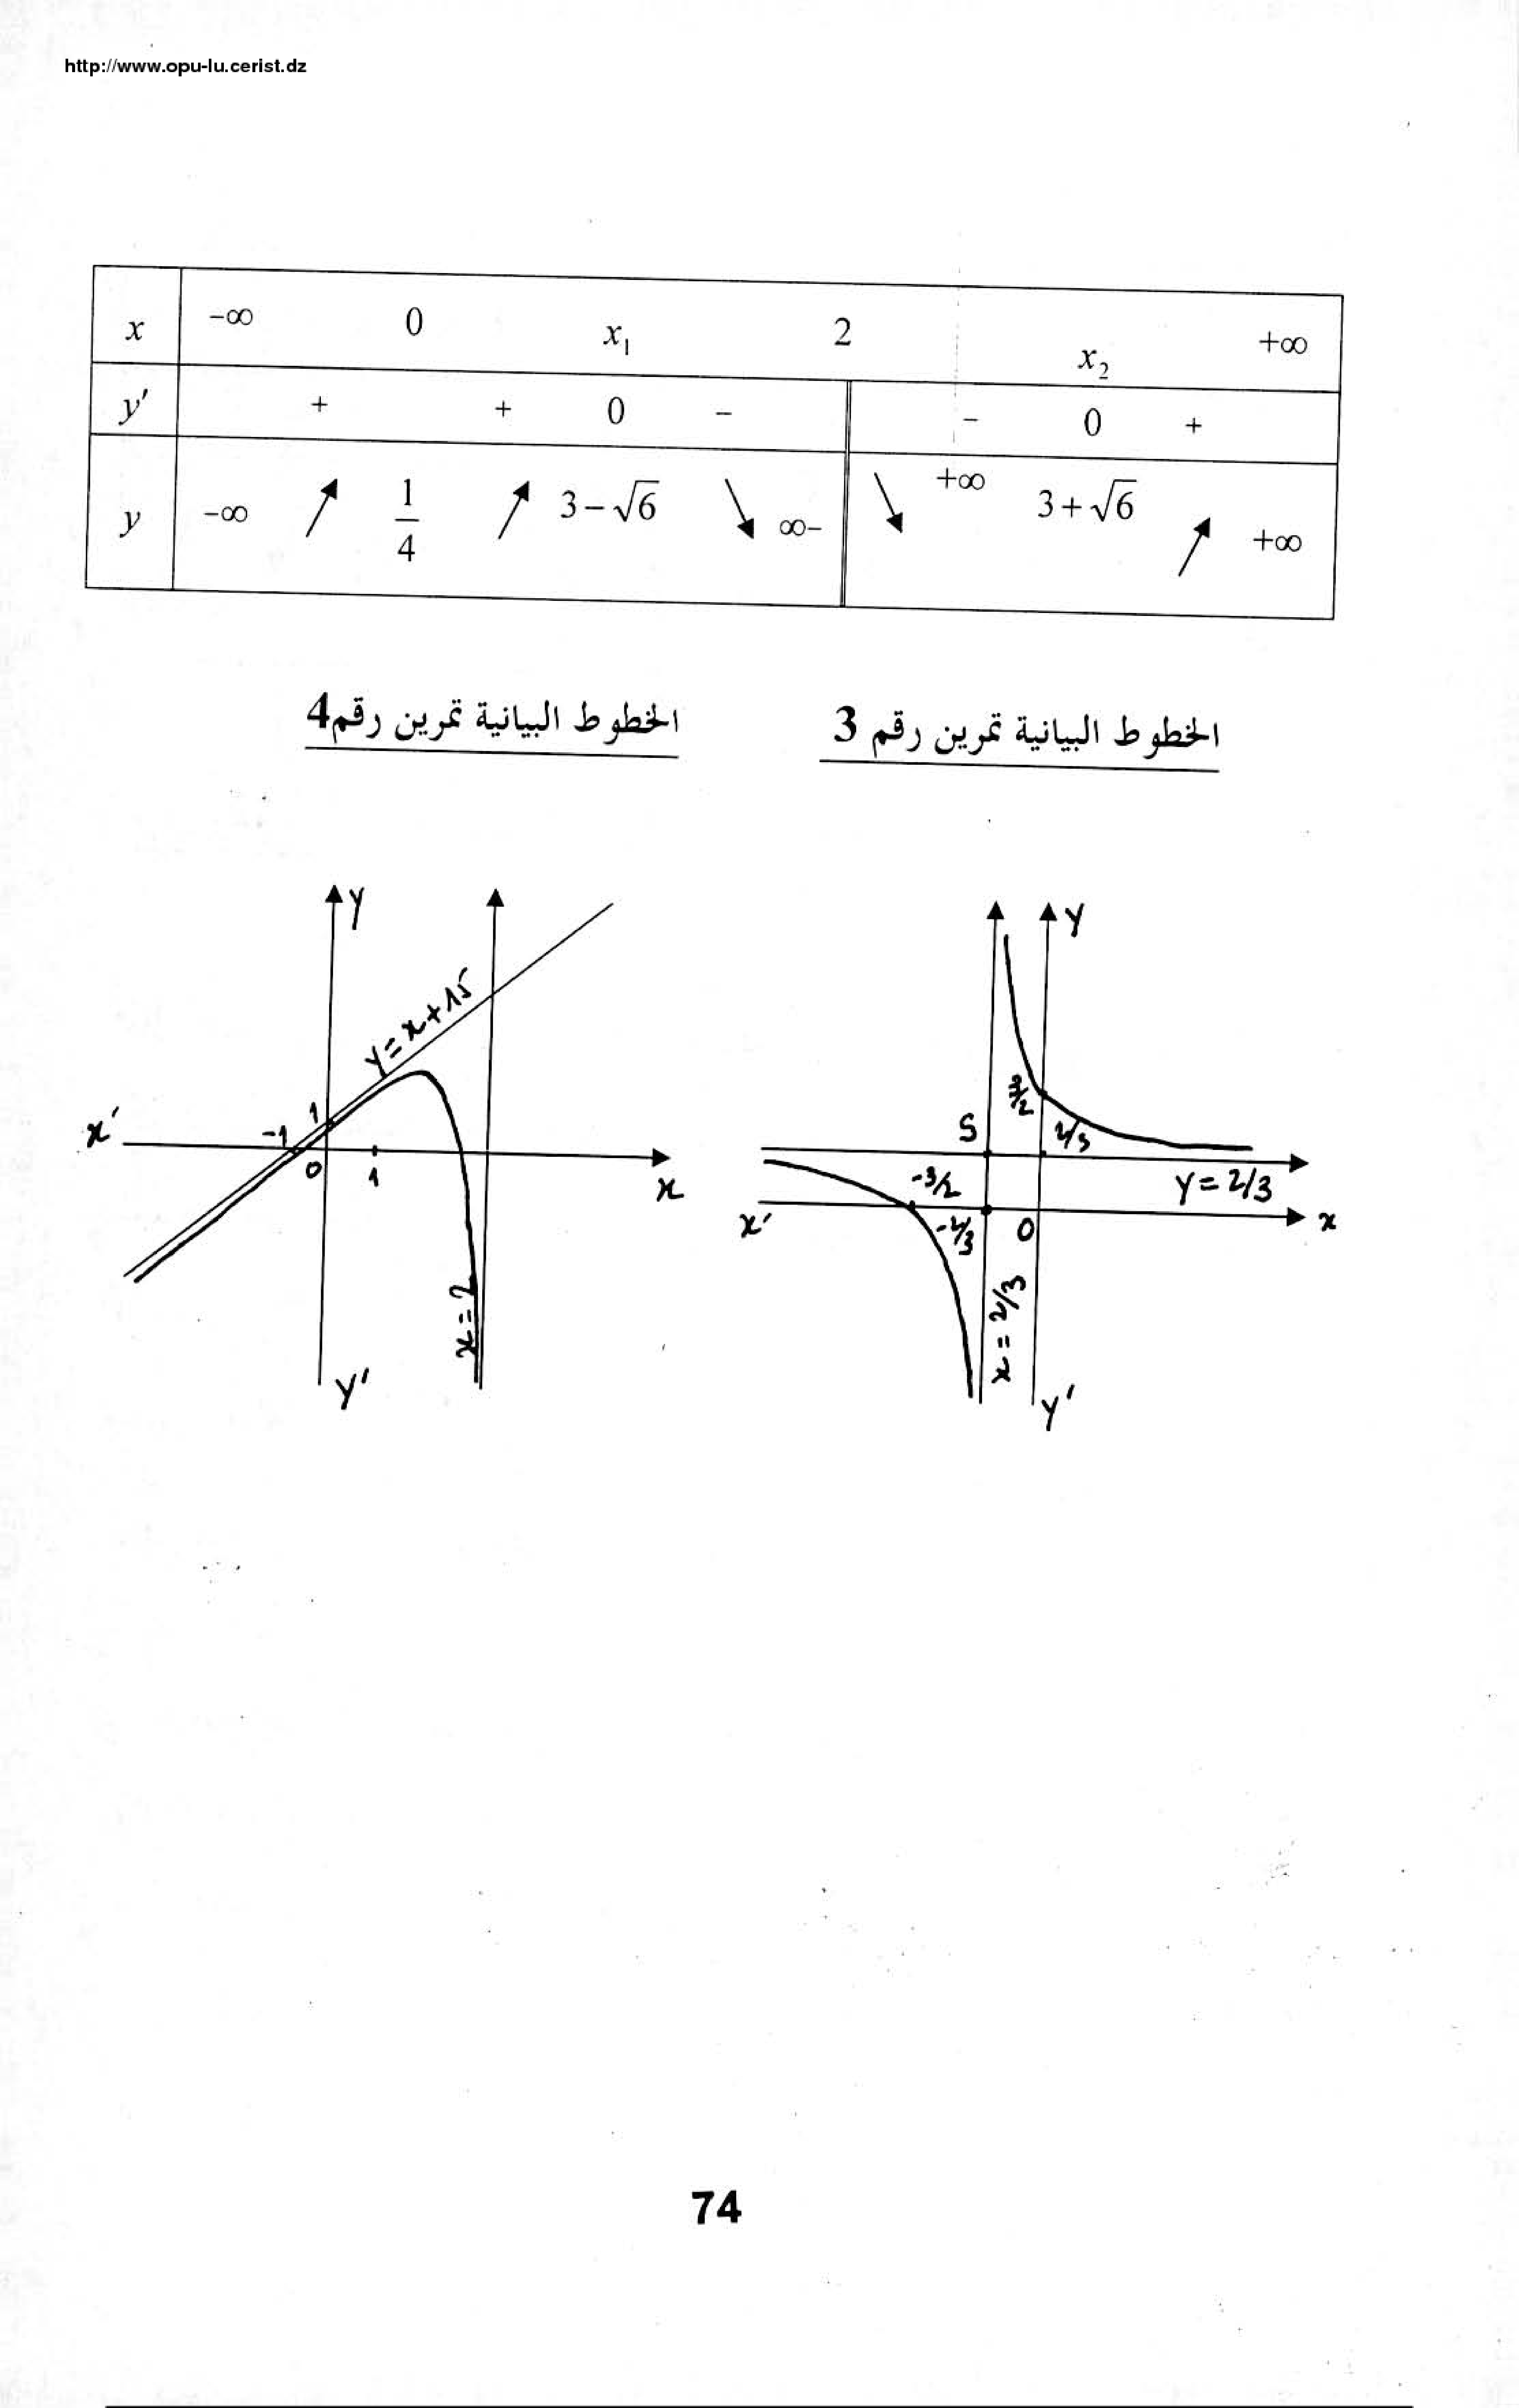 http://www.opu-lu.cerist.dz
x −∞ 0 x₁ 2 x₂ +∞
y' + + 0 − − 0 +
y −∞ ↗ 1/4 ↗ 3−√6 ↘ ∞− ↘ +∞ 3+√6 ↗ +∞
الخطوط البيانية تمرين رقم 3
الخطوط البيانية تمرين رقم4
y
y
y=x+15
3/2
1
S
x'
-1
2/3
0
1
x
-3/2
y=2/3
x'
-2/3
0
x
x=2
x=2/3
y'
y'
74